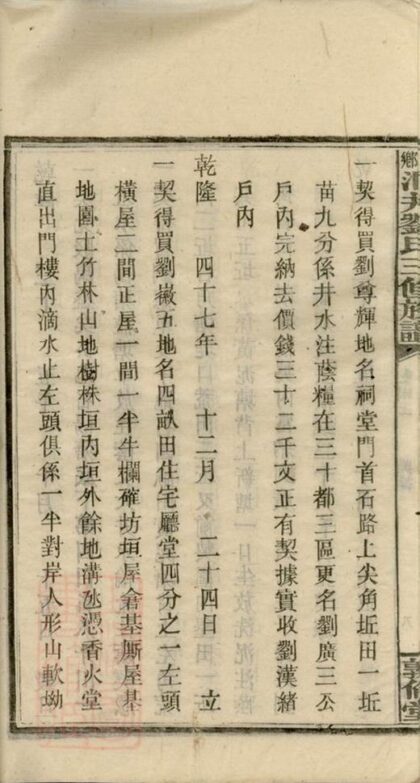 鄉
劉氏三修族譜
一契得買劉尊輝地名祠堂門首石路上尖角坵田一坵
苗九分係井水注蔭糧在三十都三區更名劉廣三公
戶內完納去價錢三十二千文正有契據實收劉漢緒
戶內
乾隆 四十七年 十二月 二十四日 立
一契得買劉徽五地名四畝田住宅廳堂四分之一左頭
橫屋二間正屋一間一半牛欄碓坊垣屋倉基厮屋基
地園土竹林山地樹株垣內垣外餘地溝氹憑香火堂
直出門樓內滴水止左頭俱係一半對岸人形山軟坳
敦倫堂